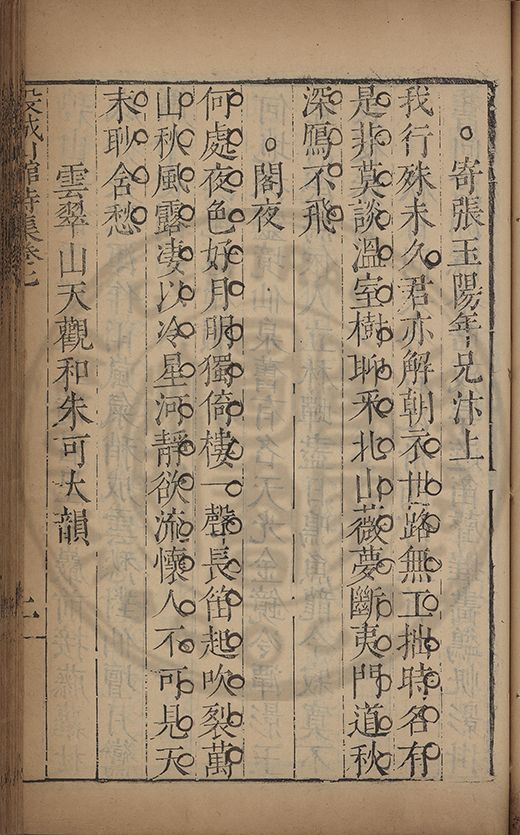 寄張玉陽年兄汴上
我行殊未久君亦解朝衣世路無工拙時名有
是非莫談溫室樹聊采北山薇夢斷夷門道秋
深鴈不飛
閣夜
何處夜色好月明獨倚樓一聲長笛起吹裂萬
山秋風露凄以冷星河靜欲流懷人不可見天
末聊含愁
雲翠山天觀和朱可大韻
穀城山館詩集卷七